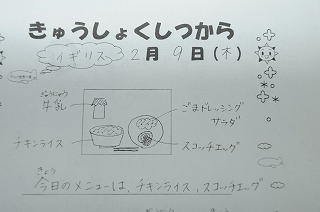 きゅうしょくしつから
イギリス 2月9日(木)
ぎゅうにゅう
牛乳
ごまドレッシング
サラダ
チキンライス
スコッチエッグ
きょう
今日のメニューは、チキンライス、スコッチエッグ